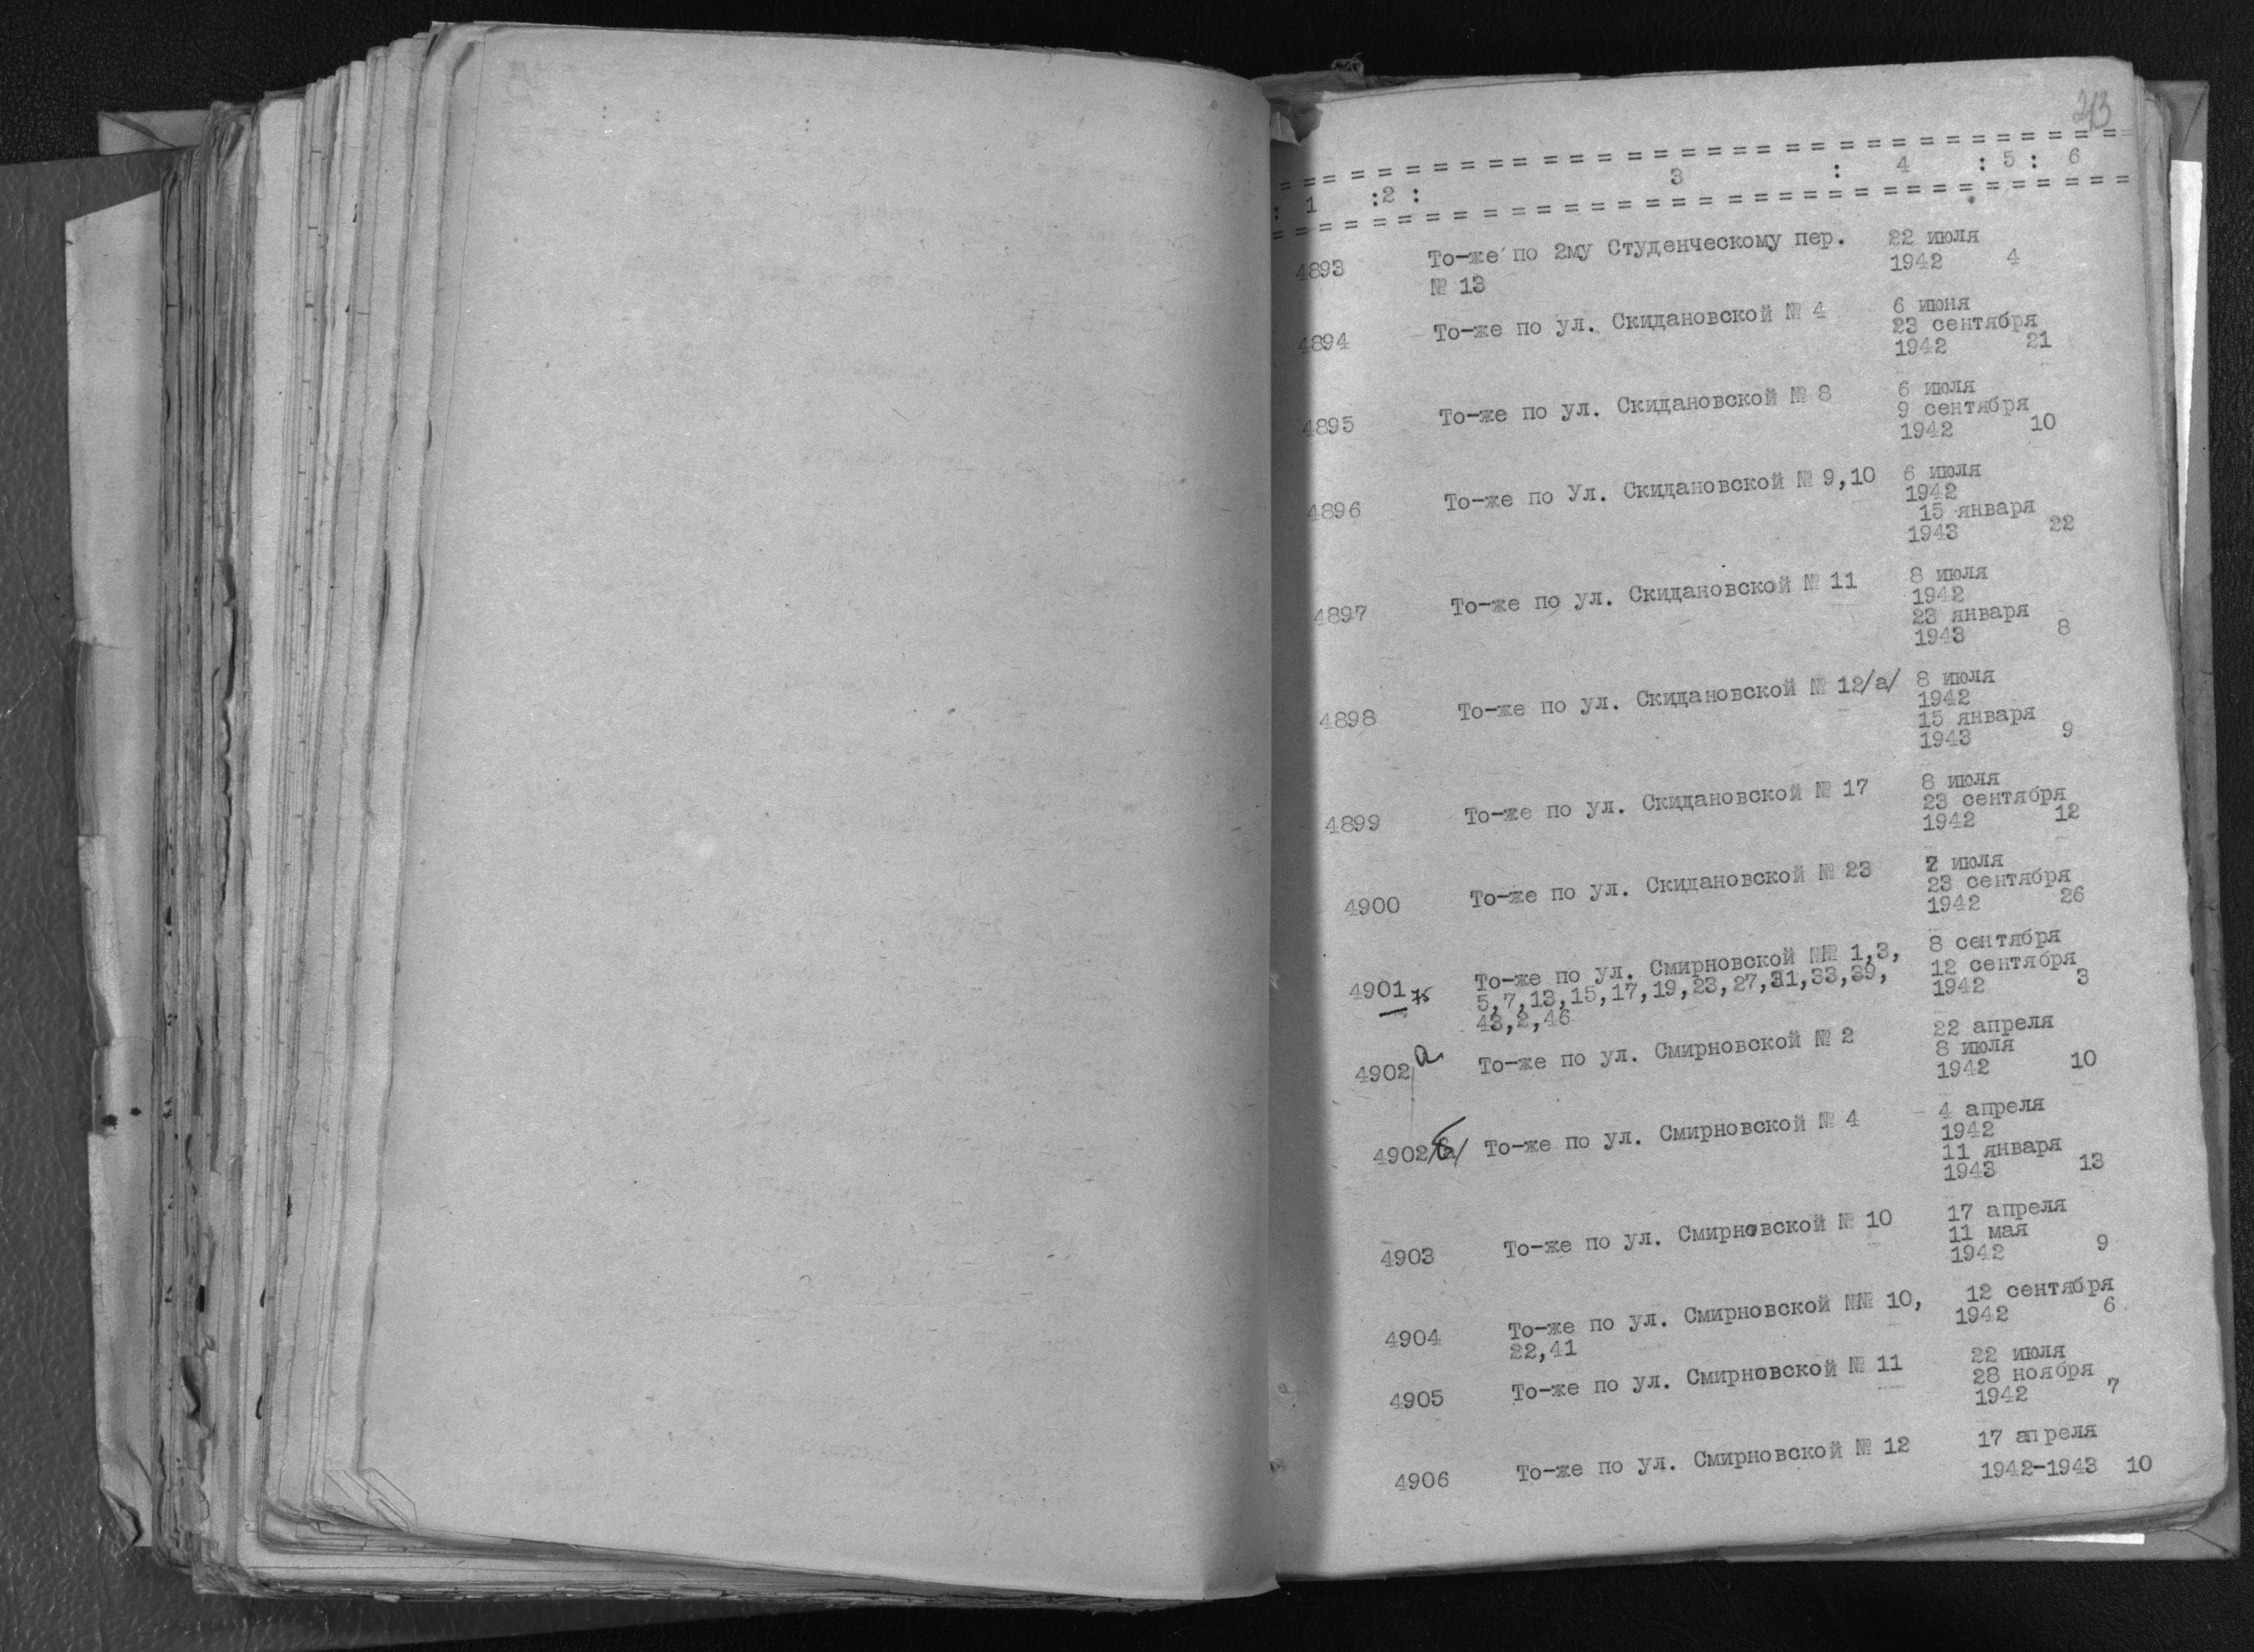 213
= = = = = = = = = = = = = = = = = = = = = = = = = = = = = = =
: 1 :2 : 3 : 4 : 5 : 6
= = = = = = = = = = = = = = = = = = = = = = = = = = = = = = =
4893 То-же по 2му Студенческому пер. 22 июля
№ 13 1942 4
4894 То-же по ул. Скидановской № 4 6 июня
23 сентября
1942 21
4895 То-же по ул. Скидановской № 8 6 июля
9 сентября
1942 10
4896 То-же по Ул. Скидановской № 9,10 6 июля
1942
15 января
1943 22
4897 То-же по ул. Скидановской № 11 8 июля
1942
23 января
1943 8
4898 То-же по ул. Скидановской № 12/а/ 8 июля
1942
15 января
1943 9
4899 То-же по ул. Скидановской № 17 8 июля
23 сентября
1942 12
4900 То-же по ул. Скидановской № 23 июля
23 сентября
1942 26
4901 То-же по ул. Смирновской №№ 1,3, 8 сентября
5,7,13,15,17,19,23,27,31,33,39, 12 сентября
43,2,46 1942 3
4902 а То-же по ул. Смирновской № 2 22 апреля
8 июля
1942 10
4902/б/ То-же по ул. Смирновской № 4 4 апреля
1942
11 января
1943 13
4903 То-же по ул. Смирновской № 10 17 апреля
11 мая
1942 9
4904 То-же по ул. Смирновской №№ 10, 12 сентября
22,41 1942 6
4905 То-же по ул. Смирновской № 11 22 июля
28 ноября
1942 7
4906 То-же по ул. Смирновской № 12 17 апреля
1942-1943 10